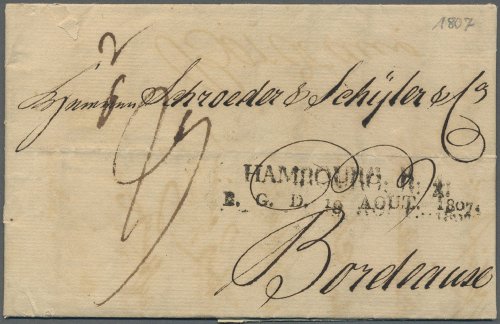 1807
Herrn Schroeder & Schÿler & Co
HAMBOURG
B. G. D. 19 AOUT. 1807.
Bordeaux